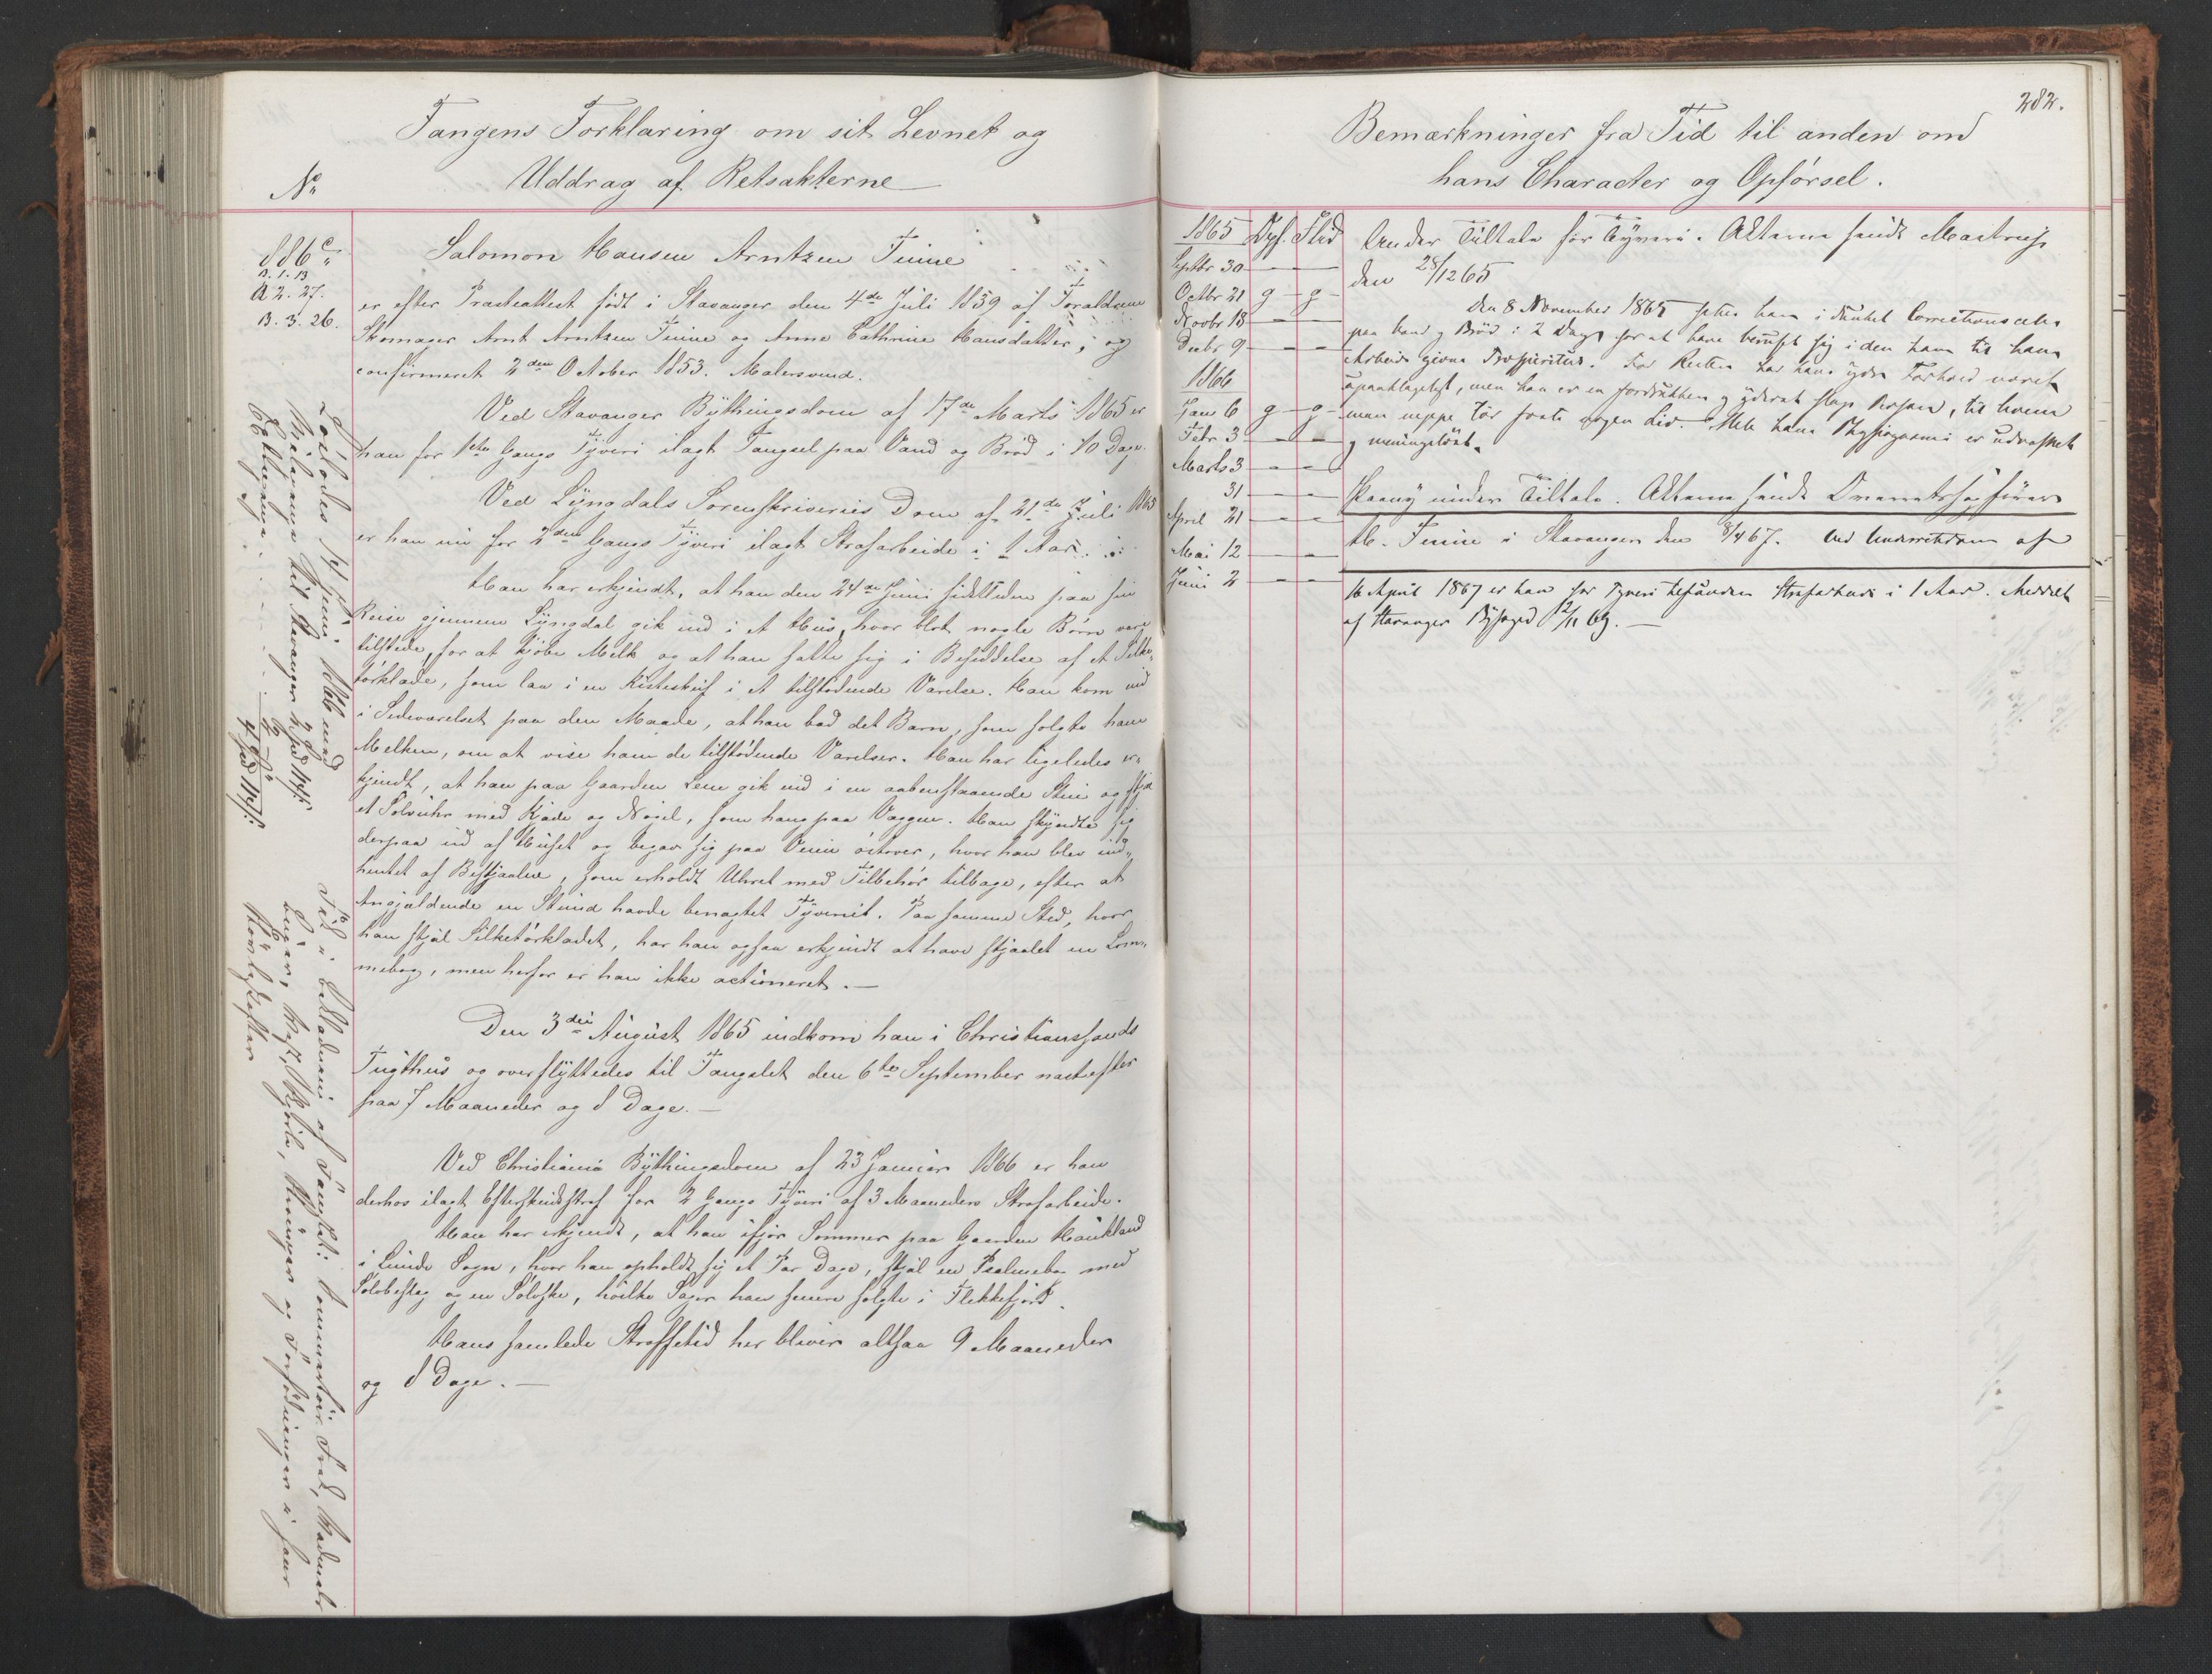 Fangens Forklaring om sit Levnet og
Uddrag af Retsakterne
No
886 c
B. 1. 13
A 2. 27.
B. 3. 26.
Salomon Hansen Arntzen Tinie
er efter Præsteattest født i Stavanger den 4de Juli 1839 af Forældrene
Skomager Arnt Arntzen Tinie og Anne Cathrine Hansdatter, og
confirmeret 2den October 1853. Malersvend.
Ved Stavanger Bythingsdom af 17de Marts 1865 er
han for 1ste Gangs Tyveri ilagt Fængsel paa Vand og Brød i 10 Dage.
Ved Lyngdals Sorenskriveries Dom af 21de Juli 1865
er han nu for 2den Gangs Tyveri ilagt Strafarbeide i 1 Aar.
Han har erkjendt, at han den 24de Juni sidstleden paa sin
Reise gjennem Lyngdal gik ind i et Hus, hvor blot nogle Børn vare
tilstede, for at kjøbe Melk og at han satte sig i Besiddelse af et Silke-
tørklæde, som laa i en Kisteskuf i et tilstødende Værelse. Han kom ind
i Sideværelset paa den Maade, at han bad det Barn, som solgte ham
Melken, om at vise ham de tilstødende Værelser. Han har ligeledes er-
kjendt, at han paa Gaarden Lene gik ind i en aabenstaaende Stue og stjal
et Sølvuhr med Kjæde og Nøgel, som hang paa Væggen. Han skyndte sig
derpaa ud af Huset og begav sig paa Veien østover, hvor han blev ind-
hentet af Bestjaalne, som erholdt Uhret med Tilbehør tilbage, efter at
Angjældende en Stund havde benægtet Tyveriet. Paa samme Sted, hvor
han stjal Silketørklædet, har han ogsaa erkjendt at have stjaalet en Lom-
mebog, men herfor er han ikke actioneret. —
Den 3die August 1865 indkom han i Christianssands
Tugthus og overflyttedes til Fængslet den 6te September næstefter
paa 7 Maaneder og 8 Dage. —
Ved Christiania Bythingsdom af 23 Januar 1866 er han
derhos ilagt Efterskudsstraf for 2 Gangs Tyveri af 3 Maaneders Strafarbeide.
Han har erkjendt, at han ifjor Sommer paa Gaarden Haukland
i Lunde Sogn, hvor han opholdt sig et Par Dage, stjal en Psalmebog med
Sølvbeslag og en Sølvske, hvilke Sager han senere solgte i Flekkefjord.
Hans samlede Straffetid her bliver altsaa 9 Maaneder
og 8 Dage. —
Løslodes 14 Juni 1866 med
til Stavanger
282.
Bemærkninger fra Tid til anden om
hans Character og Opførsel.
1865 Opf. Flid
Septbr 30 — —
Octbr 21 g — g
Novbr 18 — —
Decbr 9 — —
1866
Janr 6 g — g
Febr 3 — —
Marts 3 — —
31 — —
April 21 — —
Mai 12 — —
Juni 2 — —
Under Tiltale for Tyveri. Akterne sendt Mastrup
den 28/12 65
Den 8 November 1865 sattes han i dunkel Correctionscelle
paa Vand og Brød i 2 Dage for at have beruset sig i den ham til hans
Arbeide givne Propspiritus. For Resten har hans ydre Forhold været
upaaklageligt, men han er en fordrukken og yderst slap Person, til hvem
man neppe tør fæste nogen Lid. Hele hans Physiognomi er udvasket
og meningsløst.
Paany under Tiltale. Akterne sendt Overretssagfører
H. Finne i Stavanger den 8/4 67. Ved Underretsdom af
16 April 1867 er han for Tyveri tilfunden Strafarbeide i 1 Aar. Meddelt
af Stavanger Byfoged 12/11 69. —